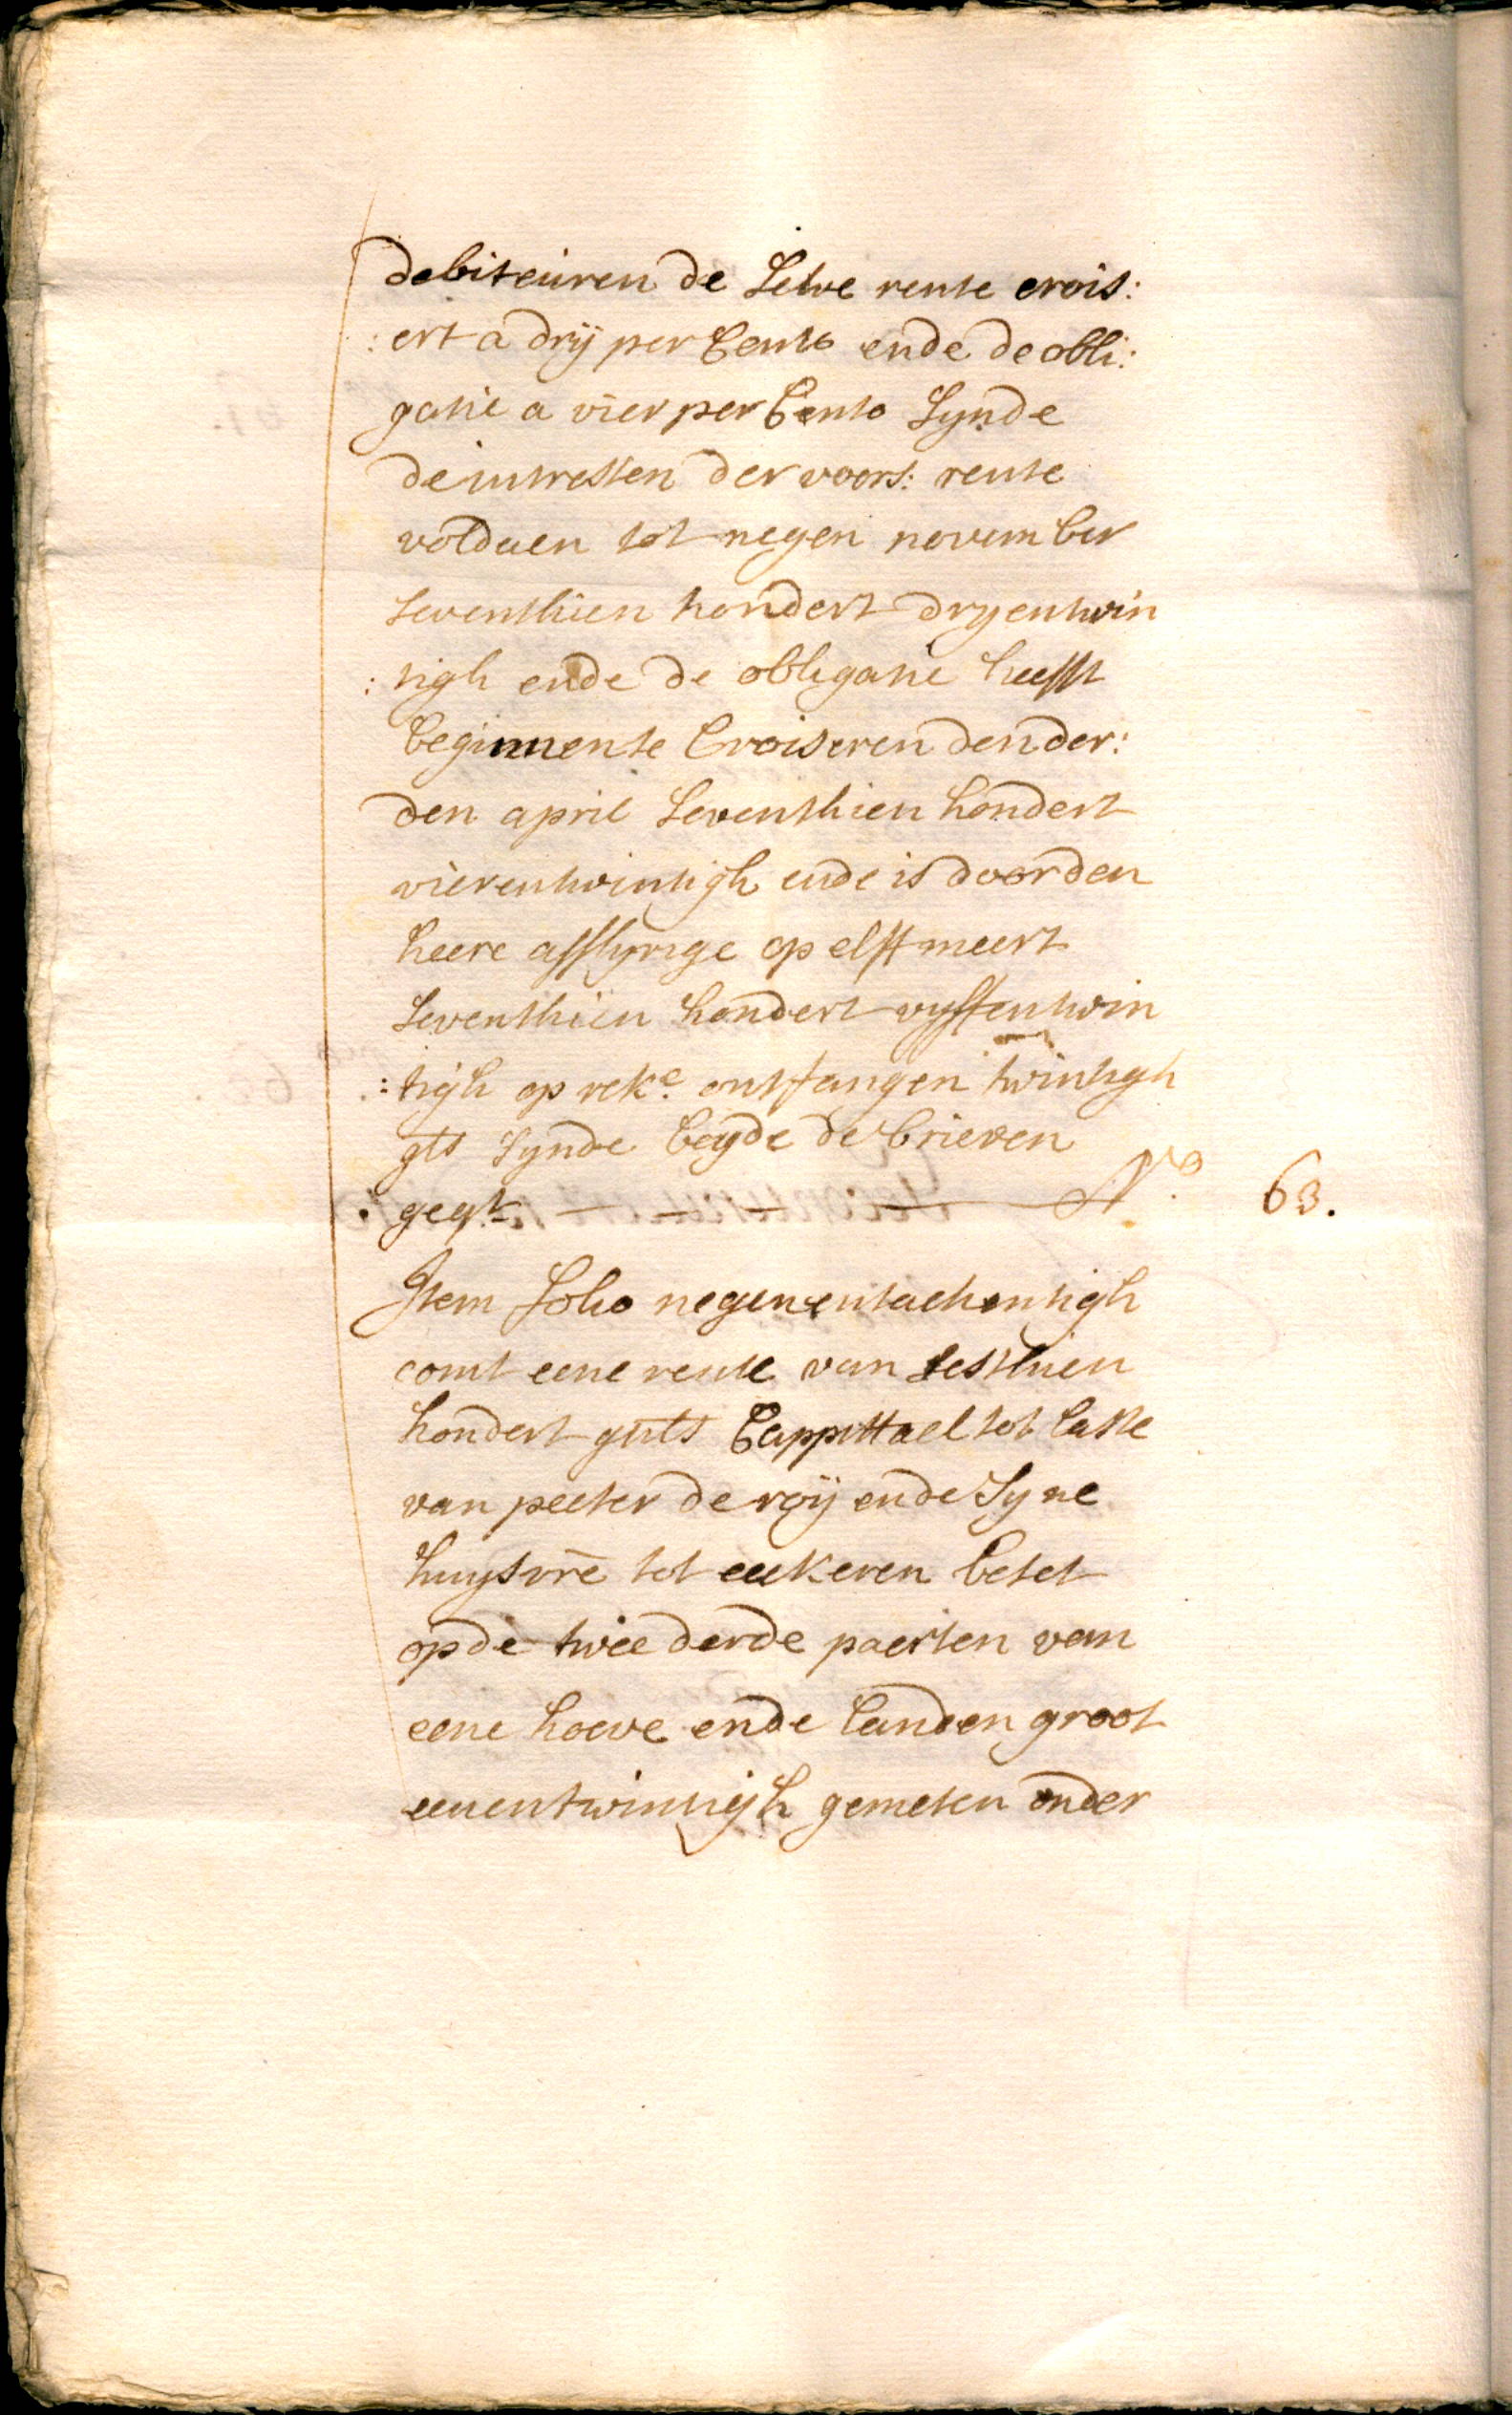 debiteuren de Selve rente crois:
:ert a drÿ per Cento ende de obli:
gatie a vier per Cento Synde
de intresten der voors: rente
voldaen tot negen november
Seventhien hondert dryentwin
:tigh ende de obligatie heefft
beginnen te Croiseren den der:
den april Seventhien hondert
vierentwintigh ende is door den
heere afflyvige op elft meert
Seventhien hondert vyffentwin
:tigh op reke. ontfangen twintigh
gls Synde beyde de brieven
geqt. — — — — No 63.
Item folio negenentachentigh
comt eene rente van Sesthien
hondert guls Cappittael tot laste
van peeter de roÿ ende Syne
huysvre tot eeckeren beset
op de twee derde paerten van
eene hoeve ende landen groot
eenentwintigh gemeten onder